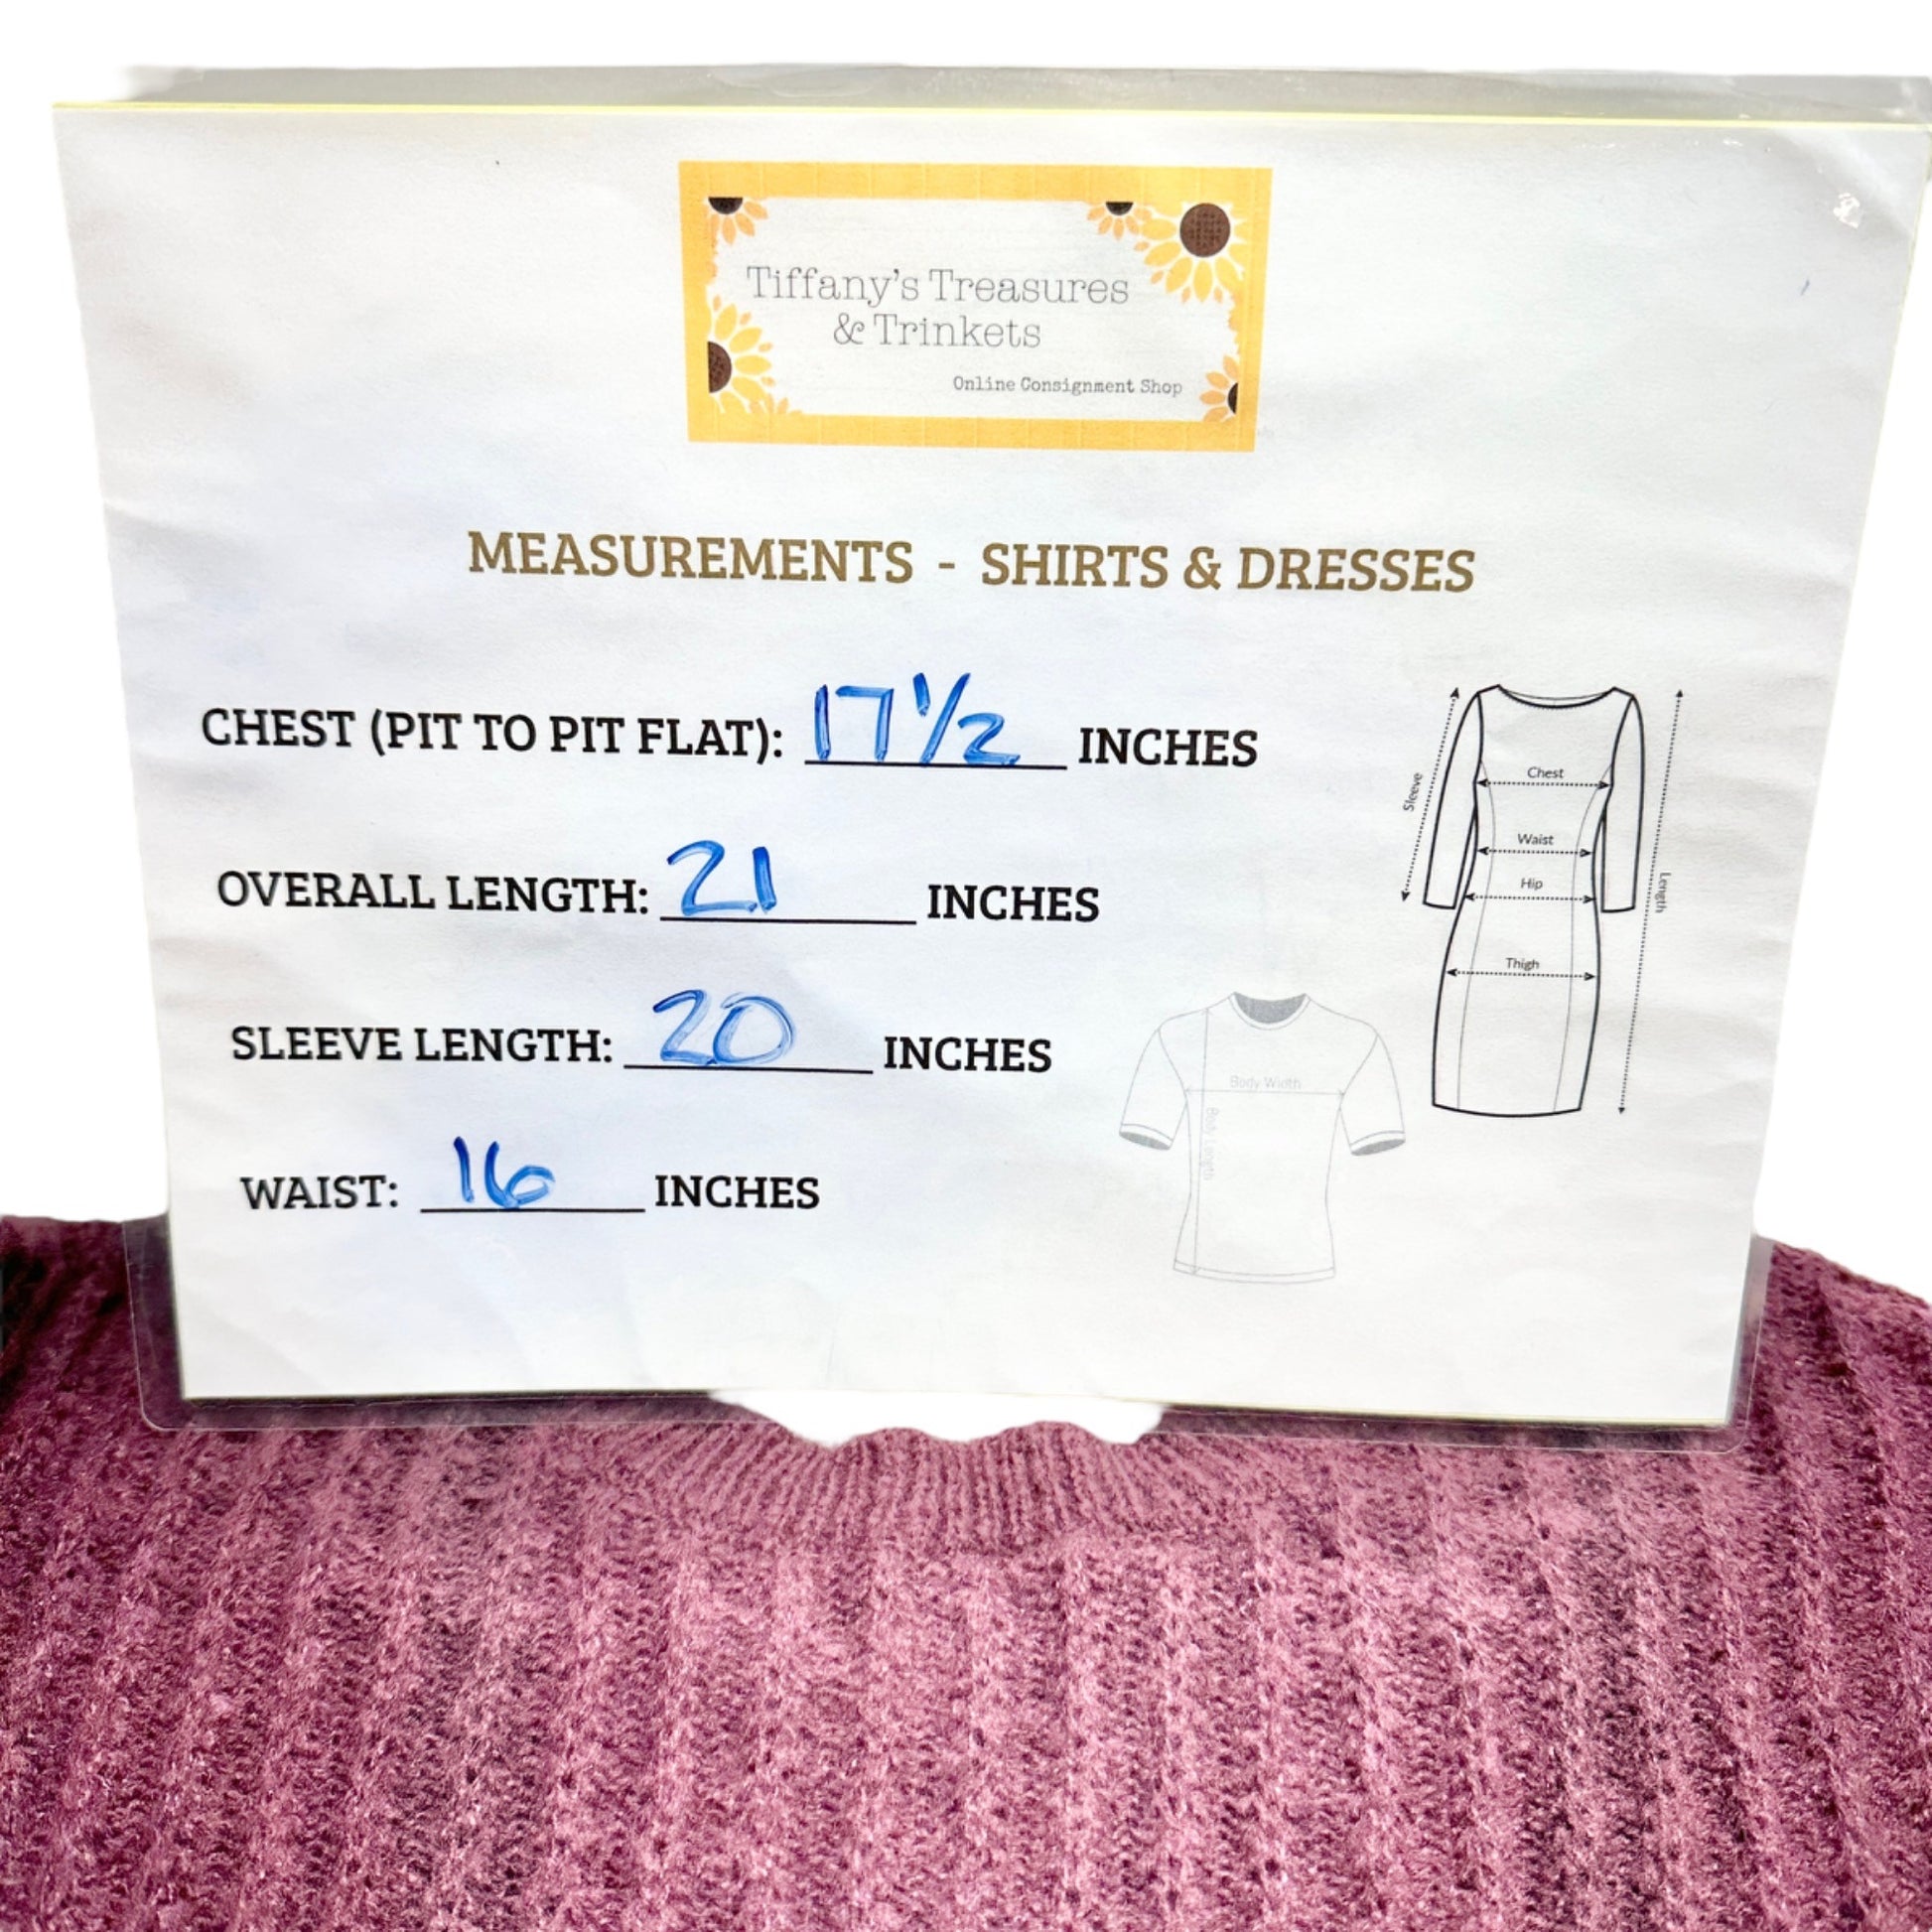 Tiffany's Treasures
& Trinkets
Online Consignment Shop
MEASUREMENTS - SHIRTS & DRESSES
CHEST (PIT TO PIT FLAT): 17 1/2 INCHES
OVERALL LENGTH: 21 INCHES
SLEEVE LENGTH: 20 INCHES
WAIST: 16 INCHES
Sleeve
Chest
Waist
Hip
Thigh
Length
Body Width
Body Length